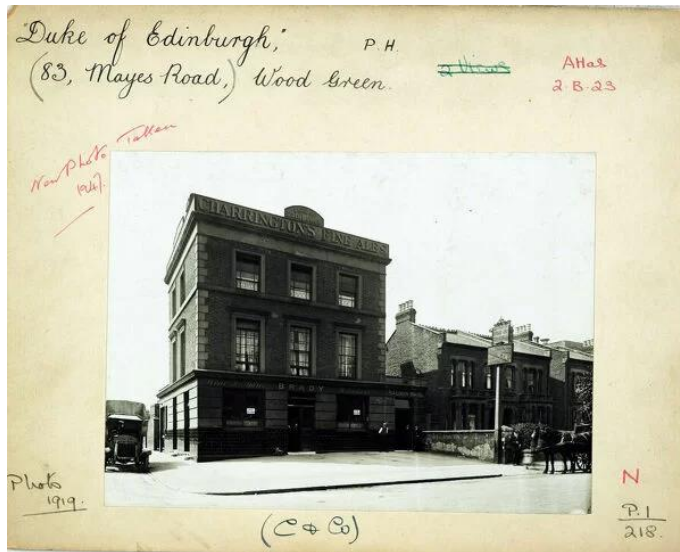 "Duke of Edinburgh," P.H.
(83, Mayes Road,) Wood Green.
2 Views
Atlas
2.B.23
New Photo Taken
1947.
CHARRINGTON'S FINE ALES
BRADY
Photo
1919.
(C & Co)
N
P.1
218.